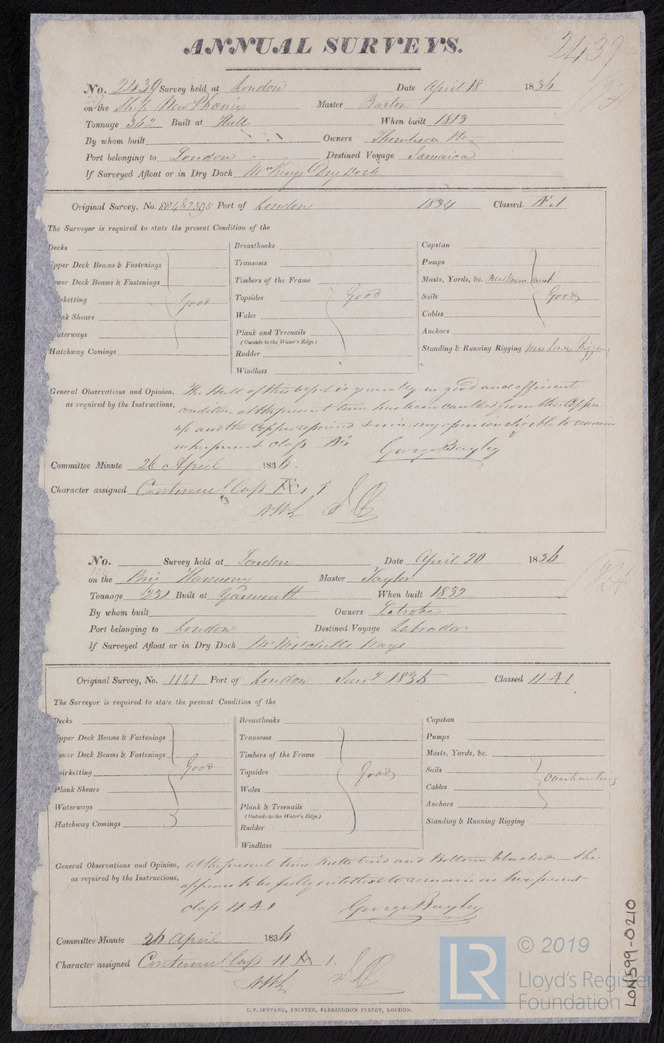 2439
ANNUAL SURVEYS.
No. 2439 Survey held at London Date April 18 1836
on the Ship Master Baxter
Tonnage 342 Built at Hull When built 1813
By whom built Owners
Port belonging to London Destined Voyage Jamaica
If Surveyed Afloat or in Dry Dock Dry Dock
Original Survey, No. Port of London 1834 Classed
The Surveyor is required to state the present Condition of the
Decks
Upper Deck Beams & Fastenings
Lower Deck Beams & Fastenings
Spirketting
Plank Shears
Waterways
Hatchway Comings
Good
Breasthooks
Transoms
Timbers of the Frame
Topsides
Wales
Plank and Treenails
(Outside to the Water's Edge)
Rudder
Windlass
Good
Capstan
Pumps
Masts, Yards, &c.
Sails
Cables
Anchors
Good
Standing & Running Rigging New Lower Rigging
General Observations and Opinion, The Hull of this vessel is generally in good and efficient
as required by the Instructions, condition at the present time has been caulked from the Copper
up and the Copper repaired & is in my opinion eligible to remain
in her present class
George Bayley
Committee Minute 26 April 1836.
Character assigned Continued Class
No. Survey held at London Date April 20 1836
on the Brig Harmony Master Taylor
Tonnage 231 Built at Yarmouth When built 1832
By whom built Owners Latrobe
Port belonging to London Destined Voyage Labrador
If Surveyed Afloat or in Dry Dock Mr Mitchells Ways
Original Survey, No. 1141 Port of London 1835 Classed 11 A 1
The Surveyor is required to state the present Condition of the
Decks
Upper Deck Beams & Fastenings
Lower Deck Beams & Fastenings
Spirketting
Plank Shears
Waterways
Hatchway Comings
Good
Breasthooks
Transoms
Timbers of the Frame
Topsides
Wales
Plank & Treenails
(Outside to the Water's Edge)
Rudder
Windlass
Good
Capstan
Pumps
Masts, Yards, &c.
Sails
Cables
Anchors
Standing & Running Rigging
General Observations and Opinion, At the present time and Bottom blacked she
as required by the Instructions, appears to be fully entitled to remain in her present
class 11 A 1
George Bayley
Committee Minute 26 April 1836
Character assigned Continued Class 11 A 1.
C. F. SEYFANG, PRINTER, FARRINGDON STREET, LONDON.
LR © 2019
Lloyd's Register
Foundation
LON599-0210